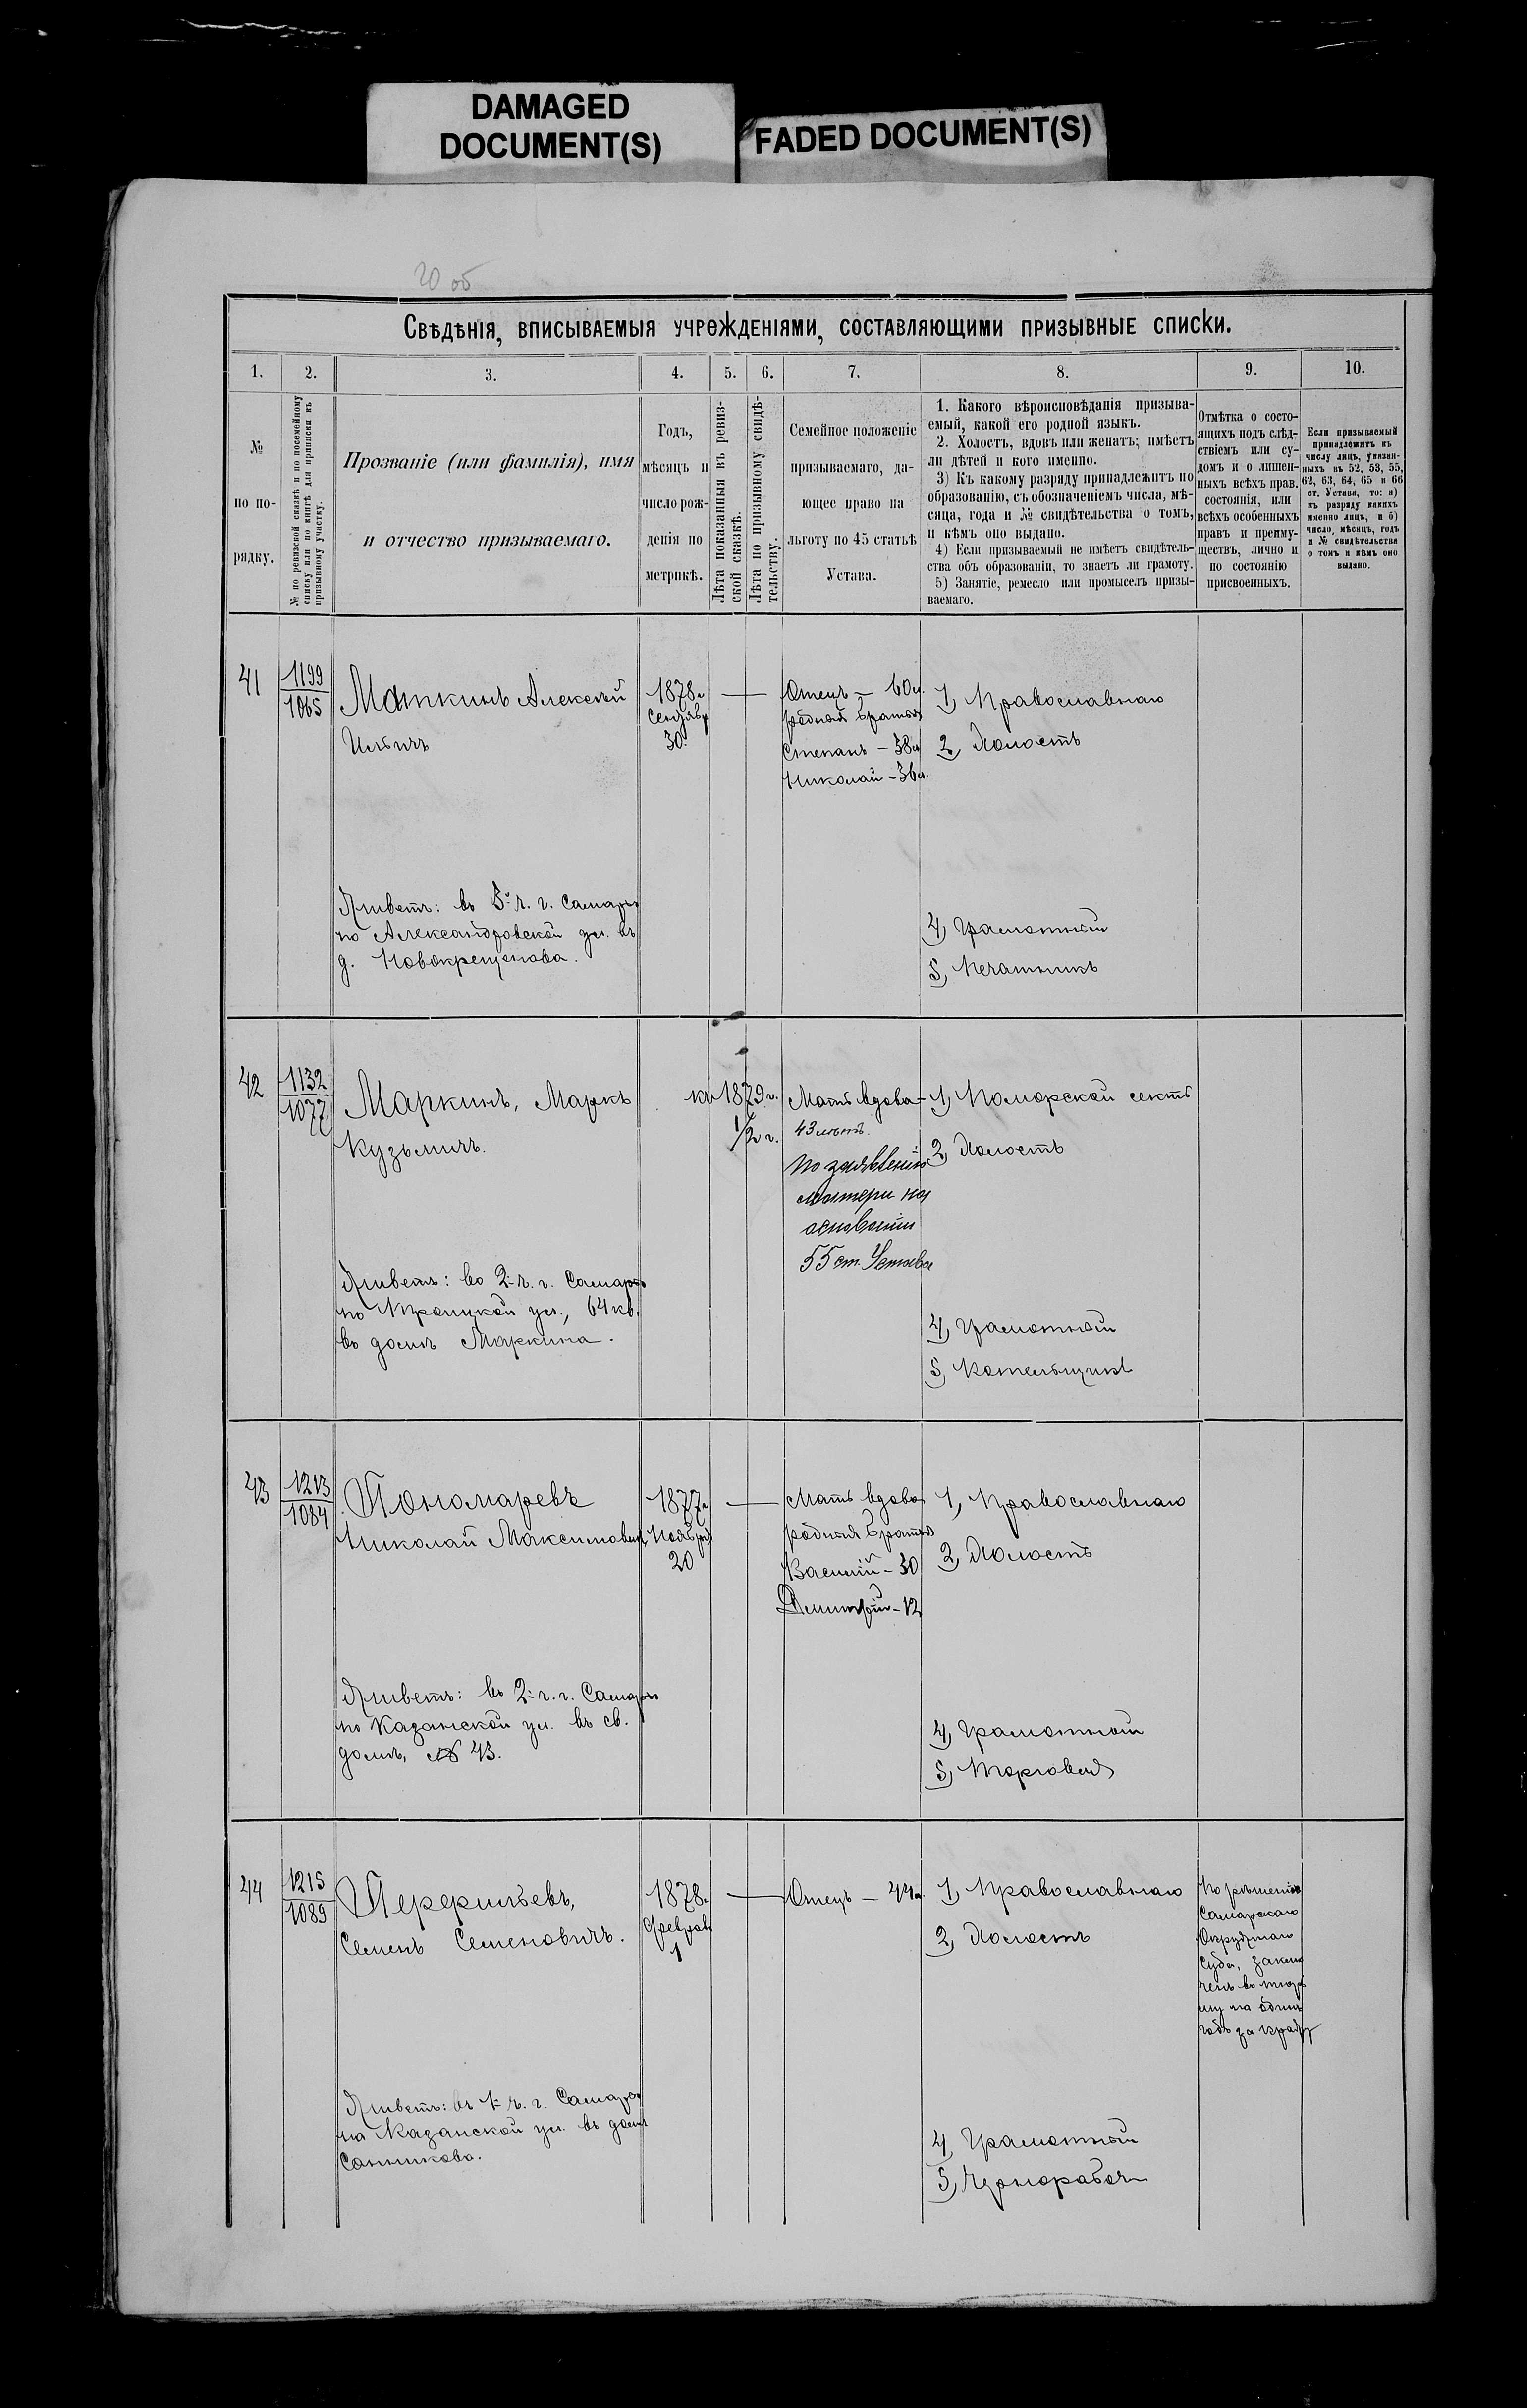 DAMAGED
DOCUMENT(S)
FADED DOCUMENT(S)
20 об
Свѣдѣнія, вписываемыя учрежденіями, составляющими призывные списки.
1.
2.
3.
4.
5.
6.
7.
8.
9.
10.
№
по по-
рядку.
№ по ревизской сказкѣ и по посемейному
списку или по книгѣ для приписки къ
призывному участку.
Прозваніе (или фамилія), имя
и отчество призываемаго.
Годъ,
мѣсяцъ и
число рож-
денія по
метрикѣ.
Лѣта показанныя въ ревиз-
ской сказкѣ.
Лѣта по призывному свидѣ-
тельству.
Семейное положеніе
призываемаго, да-
ющее право на
льготу по 45 статьѣ
Устава.
1. Какого вѣроисповѣданія призыва-
емый, какой его родной языкъ.
2. Холостъ, вдовъ или женатъ; имѣетъ
ли дѣтей и кого именно.
3) Къ какому разряду принадлежитъ по
образованію, съ обозначеніемъ числа, мѣ-
сяца, года и № свидѣтельства о томъ,
и кѣмъ оно выдано.
4) Если призываемый не имѣетъ свидѣтель-
ства объ образованіи, то знаетъ ли грамоту.
5) Занятіе, ремесло или промыселъ призы-
ваемаго.
Отмѣтка о состо-
ящихъ подъ слѣд-
ствіемъ или су-
домъ и о лишен-
ныхъ всѣхъ прав.
состоянія, или
всѣхъ особенныхъ
правъ и преиму-
ществъ, лично и
по состоянію
присвоенныхъ.
Если призываемый
принадлежитъ къ
числу лицъ, указан-
ныхъ въ 52, 53, 55,
62, 63, 64, 65 и 66
ст. Устава, то: а)
къ разряду какихъ
именно лицъ, и б)
число, мѣсяцъ, годъ
и № свидѣтельства
о томъ и кѣмъ оно
выдано.
41
1199
1065
Маткинъ Алексѣй
Ильичъ
Живетъ: въ 5й ч. г. Самары
по Александровской ул. въ
д. Новокрещенова.
1878г.
Сентябр
30.
Отецъ – 60л.
родные братья
Степанъ – 38л
Николай – 36л.
1, Православнаго
2, Холостъ
4, Грамотный
5, Печатникъ
42
1132
1077
Маркинъ, Маркъ
Кузьмичъ.
Живетъ: во 2й ч. г. Самары
по Троицкой ул., 64 кв.
въ домѣ Маркина.
къ 1879г.
1/2 г.
Мать вдова –
43 лѣтъ.
По заявленію
матери на
основаніи
55 ст. Устава
1, Поморской секты
2, Холостъ
4, Грамотный
5, Котельщикъ
43
1213
1084
Пономаревъ
Николай Максимовичъ
Живетъ: во 2й ч. г. Самары
по Казанской ул. въ св.
домѣ, № 43.
1877г
Ноября
20
Мать вдова
родные братья
Василій – 30
Дмитрій – 12
1, Православнаго
2, Холостъ
4, Грамотный
5, Торговля
44
1215
1089
Перфильевъ,
Семенъ Семеновичъ.
Живетъ: въ 1й ч. г. Самары
на Казанской ул. въ домѣ
Санникова.
1878г.
Феврал
1
Отецъ – 44л.
1, Православнаго
2, Холостъ
4, Грамотный
5, Чернорабоч
По рѣшенію
Самарскаго
Окружнаго
Суда, заклю
ченъ въ тюрь
му на одинъ
годъ за кражу